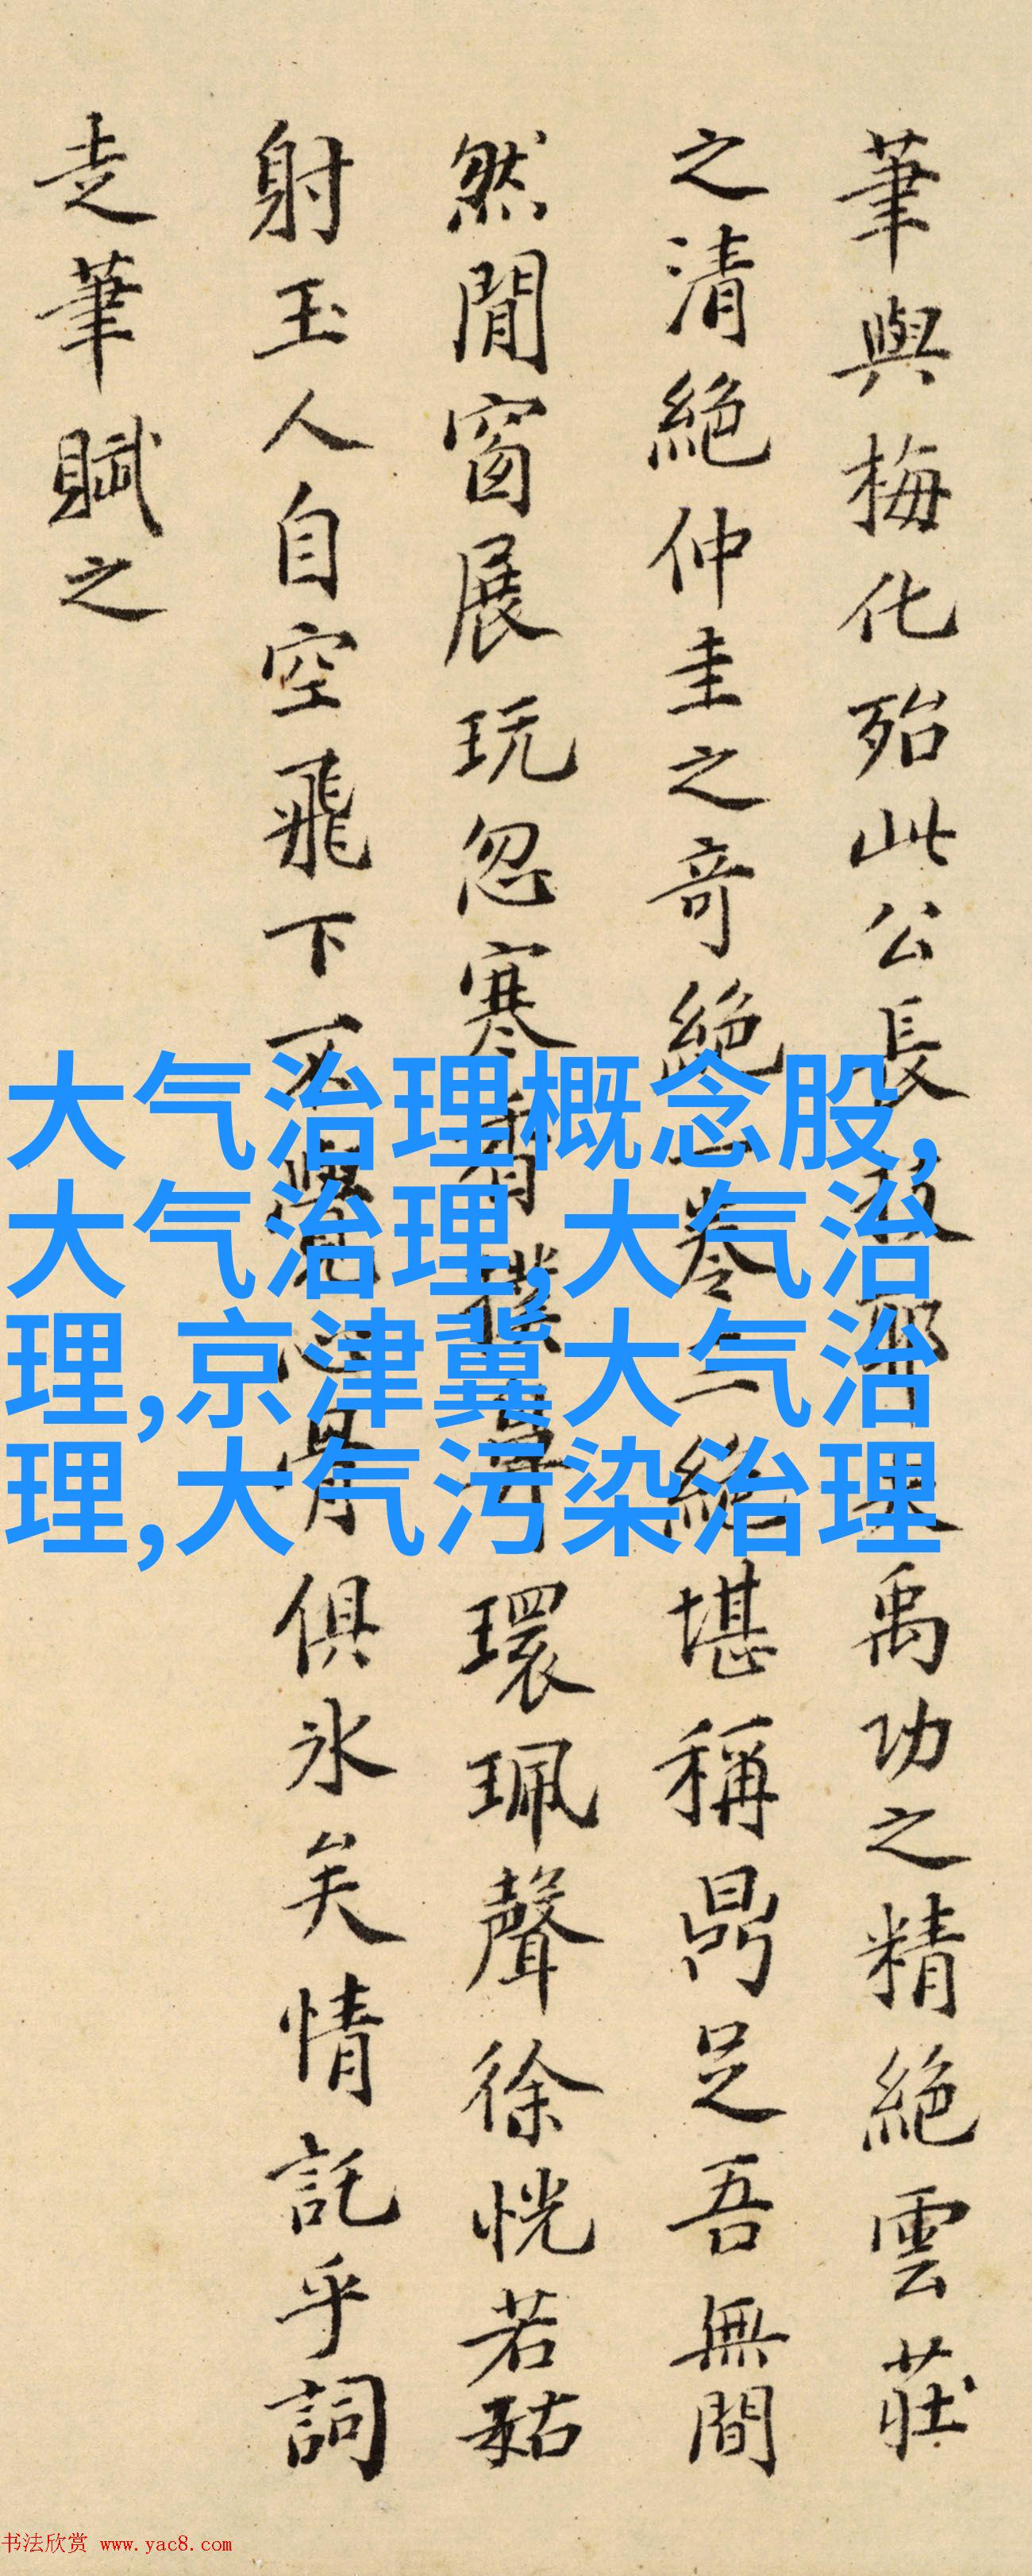 筆與梅化殆此公長技耶夫禹功之精絕雲莊
之清絕仲圭之奇絕一卷三絕堪稱鼎足吾無間
然閒窗展玩忽寒香撲鼻環珮聲徐恍若藐姑
射玉人自空飛下不覺心骨俱氷矣情託乎詞
走筆賦之
大气治理概念股,
大气治理,大气治
理,京津冀大气治
理,大气污染治理
书法欣赏 www.yac8.com